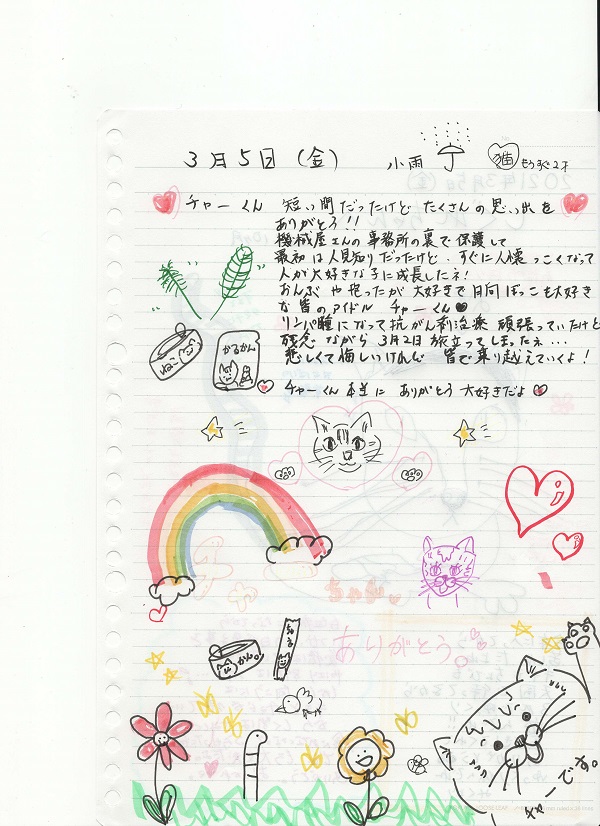 3月5日(金) 小雨 猫もうすぐ2才
チャーくん 短い間だったけど たくさんの思い出を
ありがとう!!
機械屋さんの事務所の裏で保護して
最初は人見知りだったけど、すぐに人懐っこくなって
人が大好きな子に成長したネ!
おんぶや抱っこが大好きで日向ぼっこも大好き
な皆のアイドル チャーくん
リンパ腫になって抗がん剤治療 頑張っていたけど
残念ながら 3月2日旅立ってしまったネ…
悲しくて悔しいけれど 皆で乗り越えていくよ!
チャーくん本当に ありがとう 大好きだよ
ねこ
かるかん
ありがとう。
ちゅ〜る
かん。
チャーです。